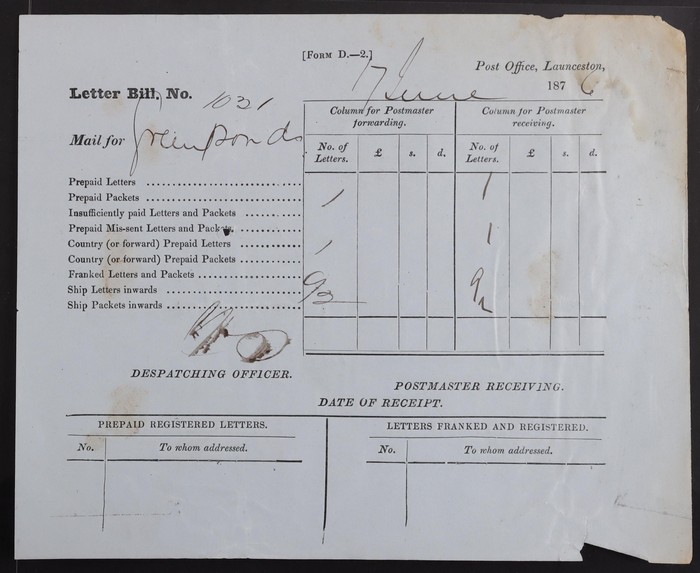 [FORM D.—2.]
Post Office, Launceston,
17 June 187 6
Letter Bill, No. 1021
Mail for Green Ponds
Column for Postmaster forwarding. Column for Postmaster receiving.
No. of Letters. £ s. d. No. of Letters. £ s. d.
Prepaid Letters 1 1
Prepaid Packets
Insufficiently paid Letters and Packets
Prepaid Mis-sent Letters and Packets. 1
Country (or forward) Prepaid Letters 1
Country (or forward) Prepaid Packets
Franked Letters and Packets
Ship Letters inwards
Ship Packets inwards
DESPATCHING OFFICER.
POSTMASTER RECEIVING.
DATE OF RECEIPT.
PREPAID REGISTERED LETTERS. LETTERS FRANKED AND REGISTERED.
No. To whom addressed. No. To whom addressed.